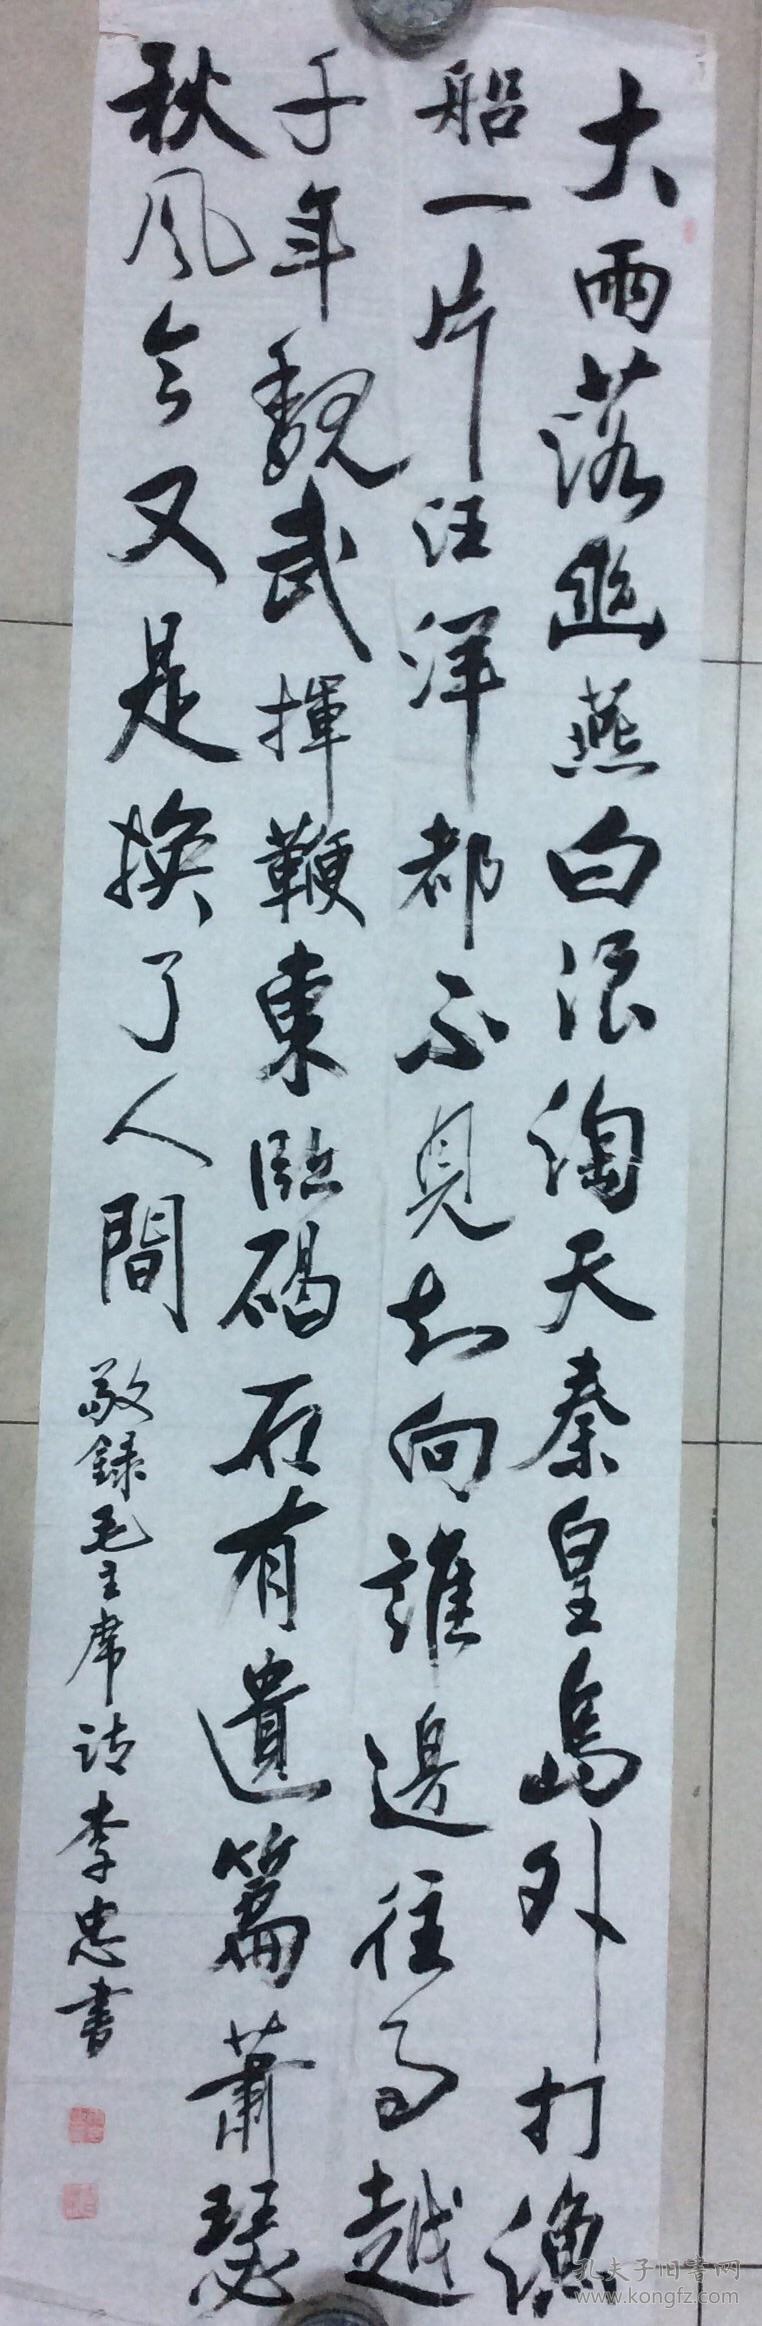 大雨落幽燕白浪滔天秦皇島外打漁
船一片汪洋都不見知向誰邊往事越
千年魏武揮鞭東臨碣石有遺篇蕭瑟
秋風今又是換了人間
敬録毛主席詞李忠書
孔夫子旧書网
www.kongfz.com